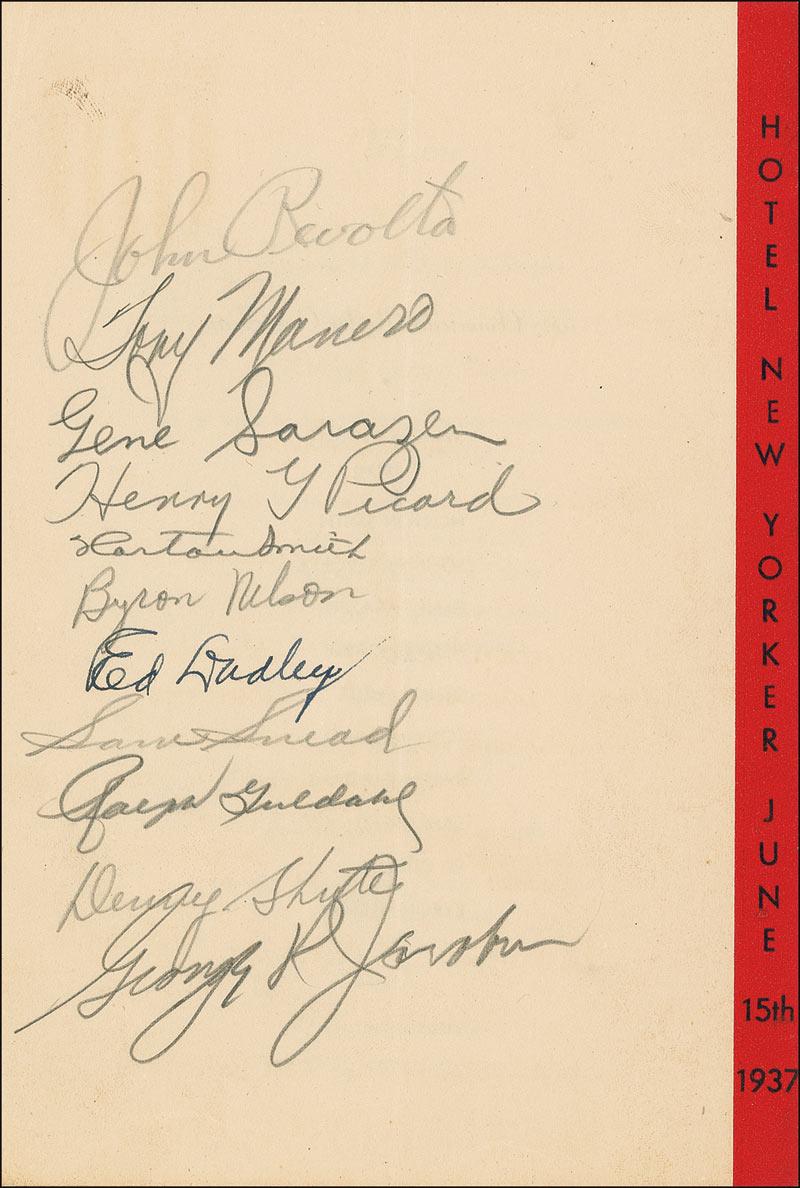 John Revolta
Tony Manero
Gene Sarazen
Henry G Picard
Horton Smith
Byron Nelson
Ed Dudley
Sam Snead
Ralph Guldahl
Denny Shute
George R Jacobus
HOTEL NEW YORKER JUNE 15th 1937